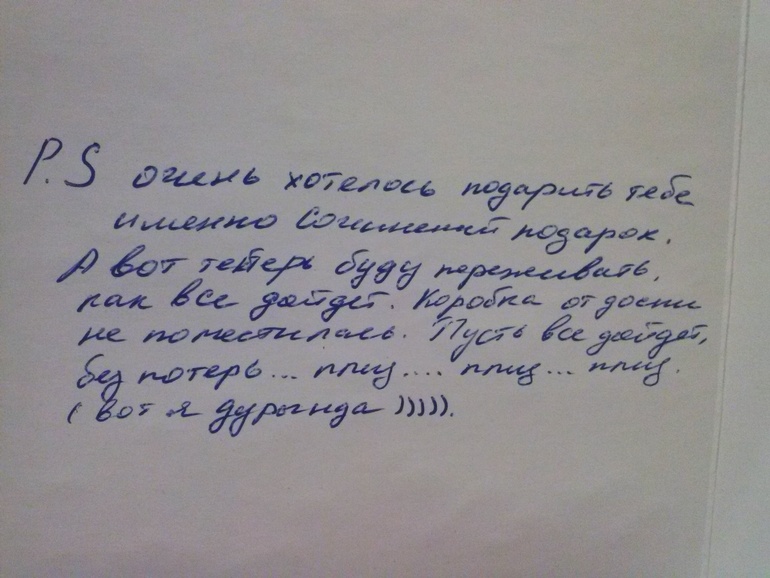 P.S очень хотелось подарить тебе
именно Сочинский подарок.
А вот теперь буду переживать,
как все дойдет. Коробка от доски
не поместилась. Пусть все дойдет,
без потерь... плиз.... плиз... плиз.
(вот я дурында ))))).